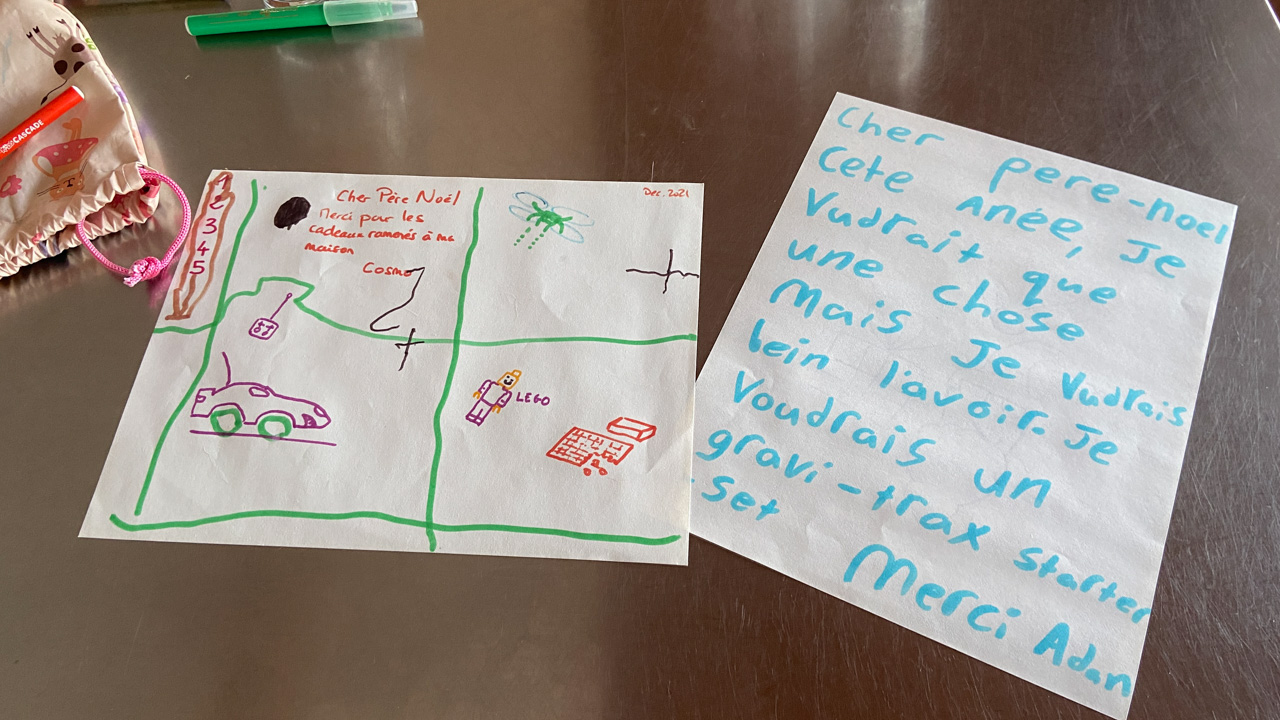 CASCADE
1
2
3
4
5
Cher Père Noël
Merci pour les
cadeaux ramenés à ma
maison
Cosmo
Dec. 2021
LEGO
Cher pere-noel
Cete Anée, Je
Vudrait que
une chose
Mais Je Vudrais
bein l'avoir. Je
Voudrais un
gravi-trax starter
-Set
Merci Adan